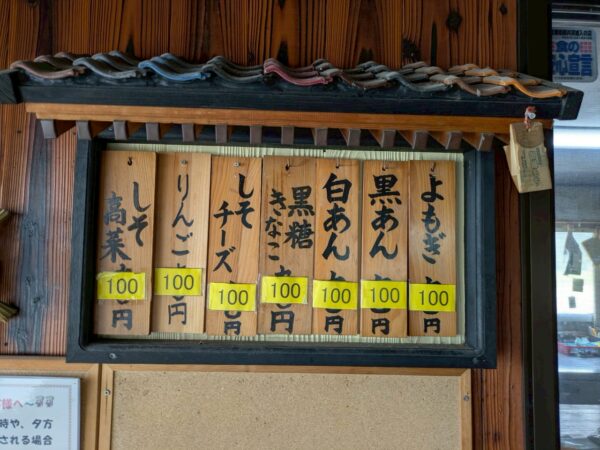 よもぎ
100
円
黒あん
100
円
白あん
100
円
黒糖
きなこ
100
円
しそ
チーズ
100
円
りんご
100
円
しそ
高菜
100
円
食の
宣言
様へ～
時や、夕方
される場合